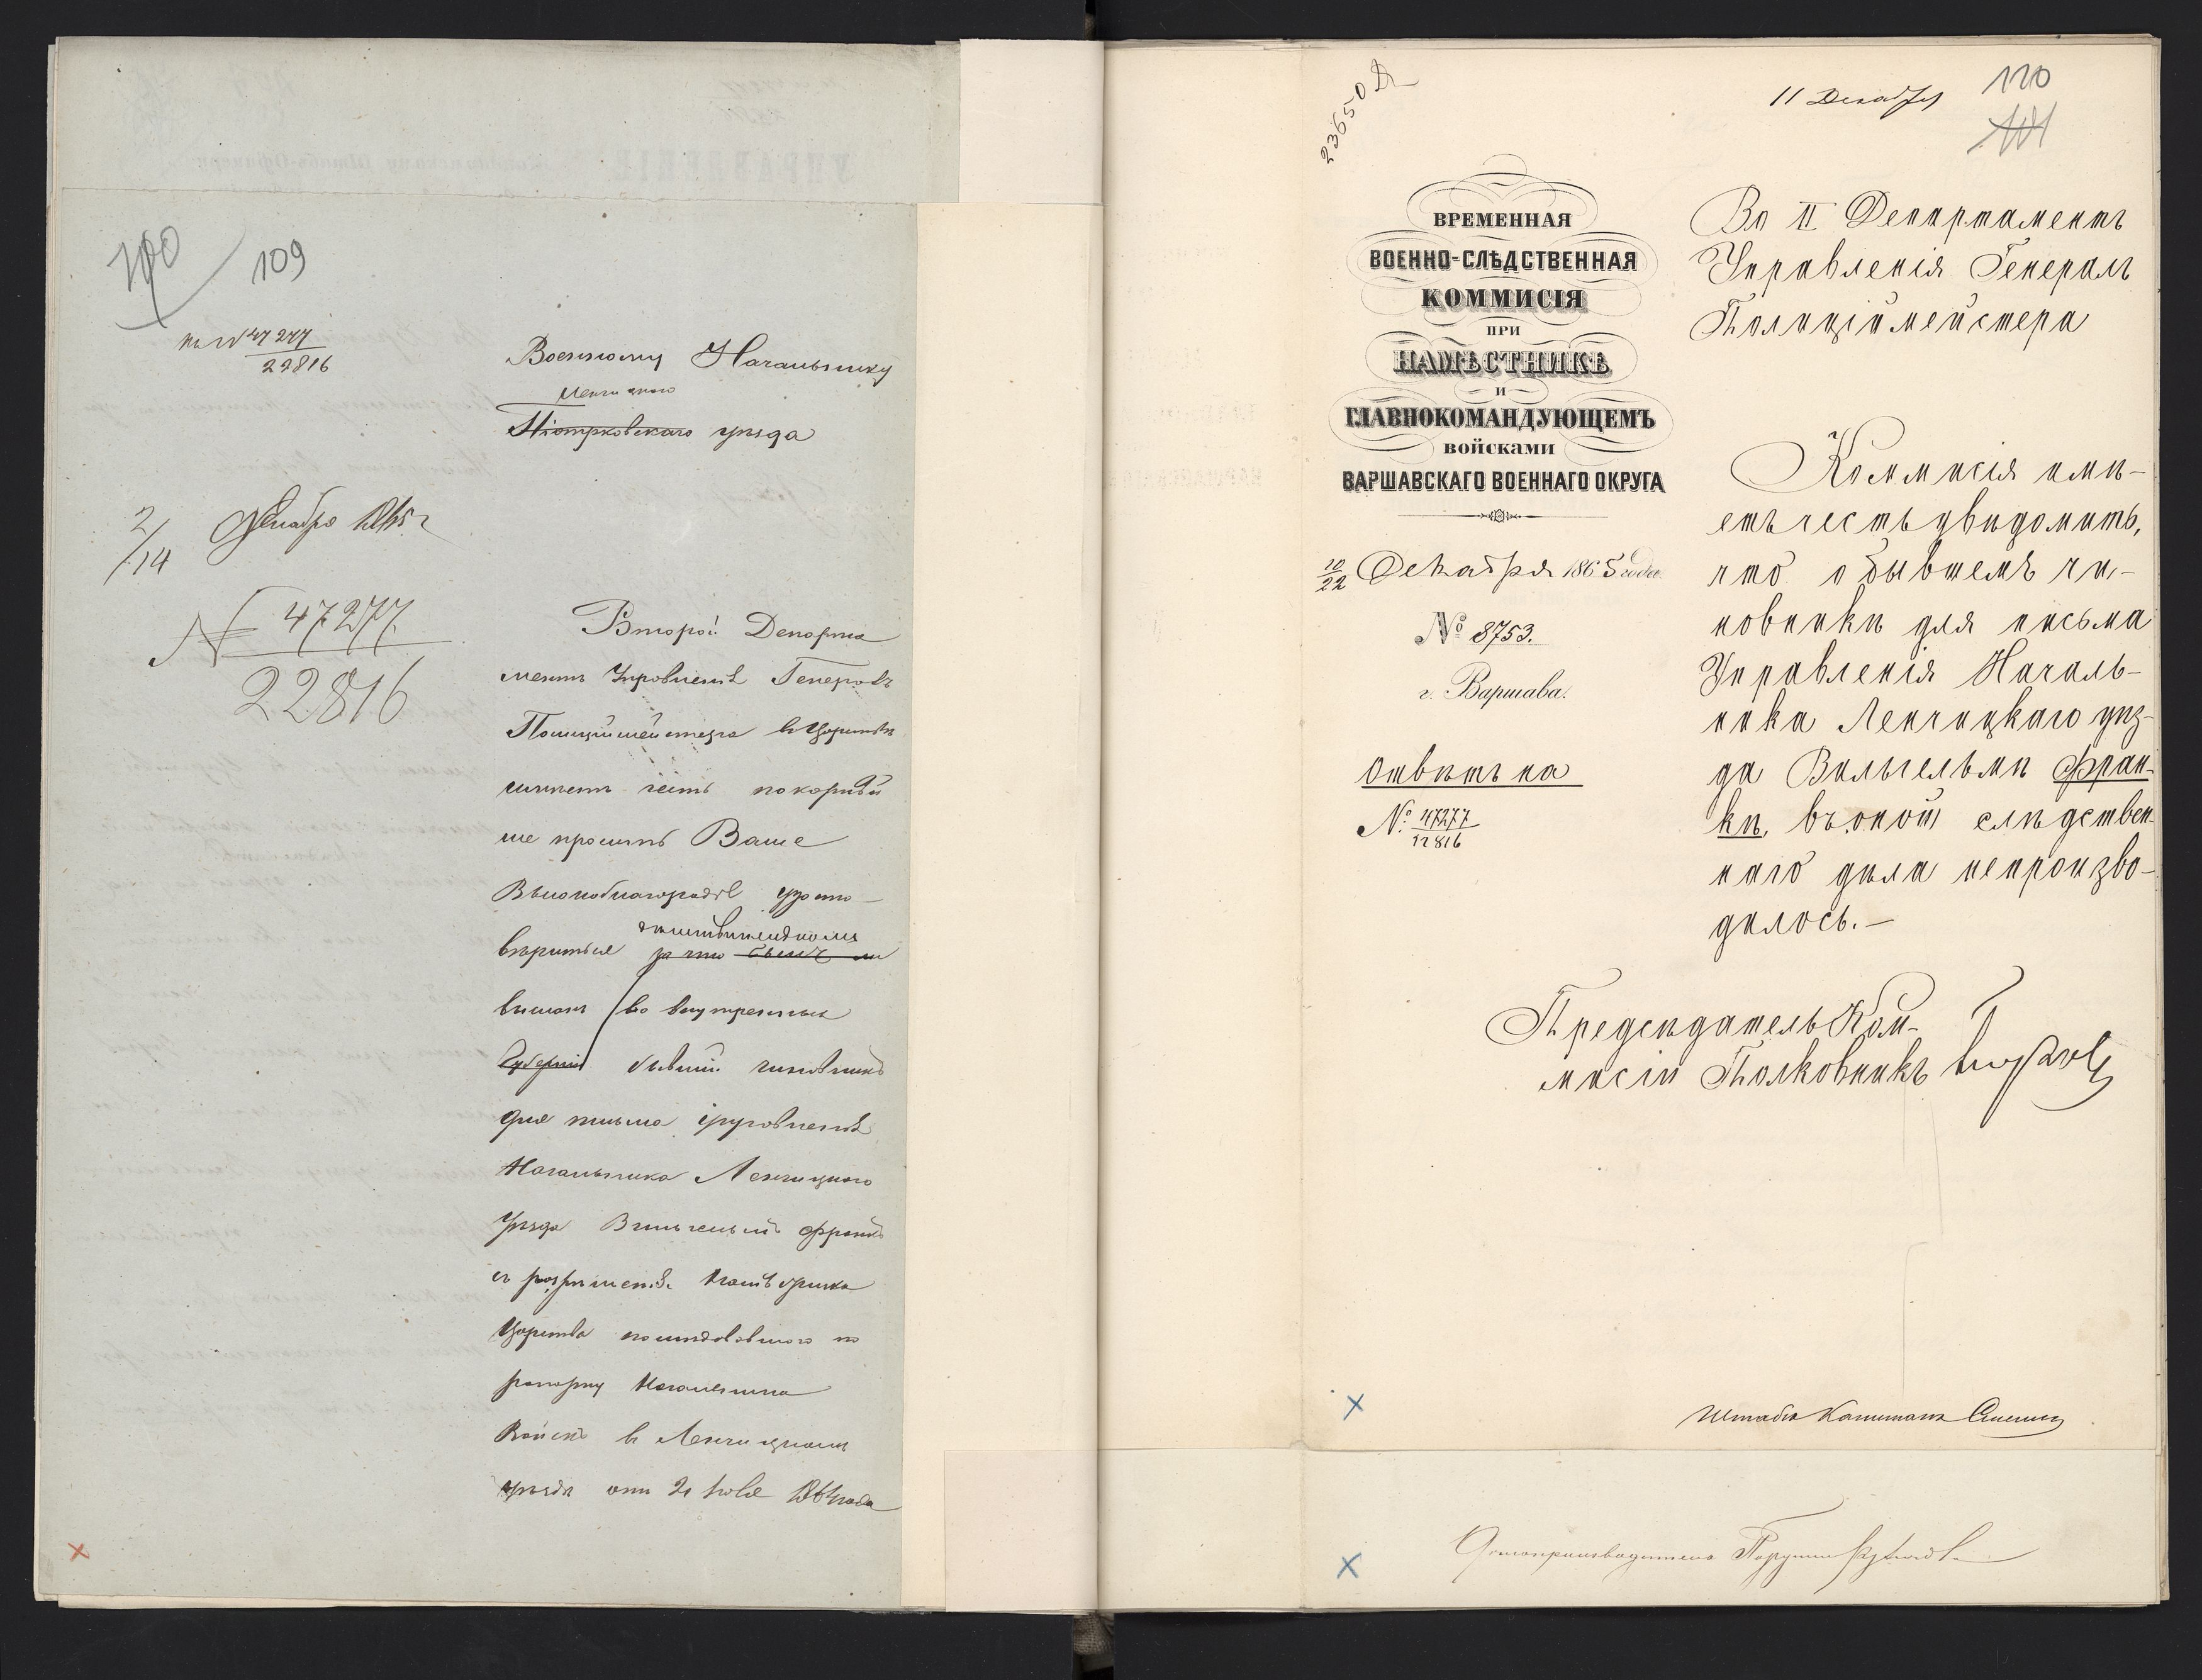 100
109
к № 47277
22816
Военному Начальнику
Ленчицкого
Піотрковскаго уѣзда
2/14 Декабря 1865 г
№ 47277
22816
Второй Департа
ментъ Управленія Генералъ
Полиціймейстера въ Царствѣ
имѣетъ честь покорнѣй
ше просить Ваше
Высокоблагородіе удосто-
вѣриться за что былъ ли
высланъ во внутреннія
Губерніи бывшій чиновникъ
для письма Управленія
Начальника Ленчицкаго
Уѣзда Вильгельмъ Франкъ
съ разрѣшенія Намѣстника
Царства послѣдовавшаго по
рапорту Начальника
Войскъ въ Ленчицкомъ
уѣздѣ отъ 1864 года
23650
11 Декабря
110
101
ВРЕМЕННАЯ
ВОЕННО-СЛѢДСТВЕННАЯ
КОММИСІЯ
ПРИ
НАМѢСТНИКѢ
И
ГЛАВНОКОМАНДУЮЩЕМЪ
ВОЙСКАМИ
ВАРШАВСКАГО ВОЕННАГО ОКРУГА
10/22 Декабря 1865 года.
№ 8753.
г. Варшава.
Отвѣтъ на
№ 47277
22816
Во II Департаментъ
Управленія Генералъ
Полиціймейстера
Коммисія имѣ-
етъ честь увѣдомить,
что о бывшемъ чи-
новникѣ для письма
Управленія Началь-
ника Ленчицкаго уѣз-
да Вильгельмѣ Фран-
кѣ, въ оной слѣдствен-
наго дѣла непроизво-
дилось.-
Предсѣдатель Ком-
мисіи Полковникъ
Штабсъ Капитанъ
Дѣлопроизводитель Поручикъ